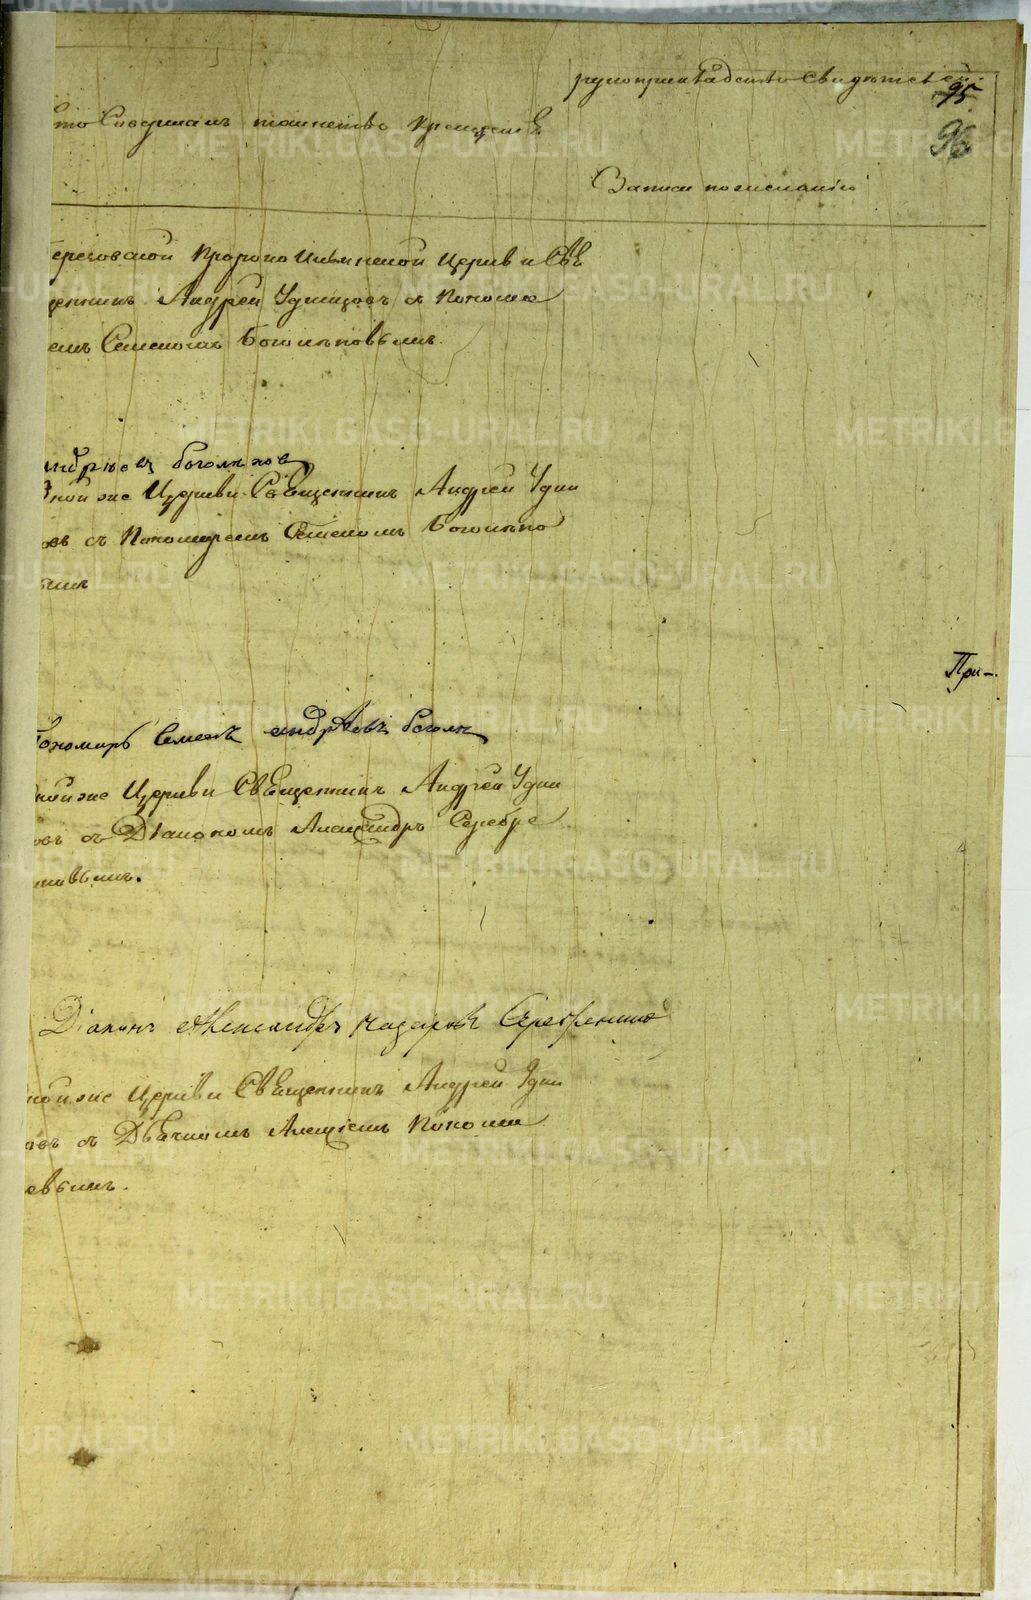 рукоприкладство свидѣтелей
95
96
кто совершалъ таинство крещенiя
Записи по желанiю
Береговской Пророко Ильинской Церкви Свя
щенникъ Андрей Удинцовъ съ Понома
емъ Семеномъ Боголѣповымъ.
андрѣевъ боголѣпов
Той же Церкви Священникъ Андрей Удин
овъ съ Пономаремъ Семеномъ Боголѣпо
вымъ
При-
Пономарь Семенъ андрѣевъ боголѣ
той же Церкви Священникъ Андрей Удин
овъ съ Дiакономъ Александръ Серебре
никовымъ.
Дiаконъ Александръ Назаровъ Серебренико
той же Церкви Священникъ Андрей Удин
овъ съ Дьячкомъ Алексѣемъ Понома
евымъ.
METRIKI.GASO-URAL.RU